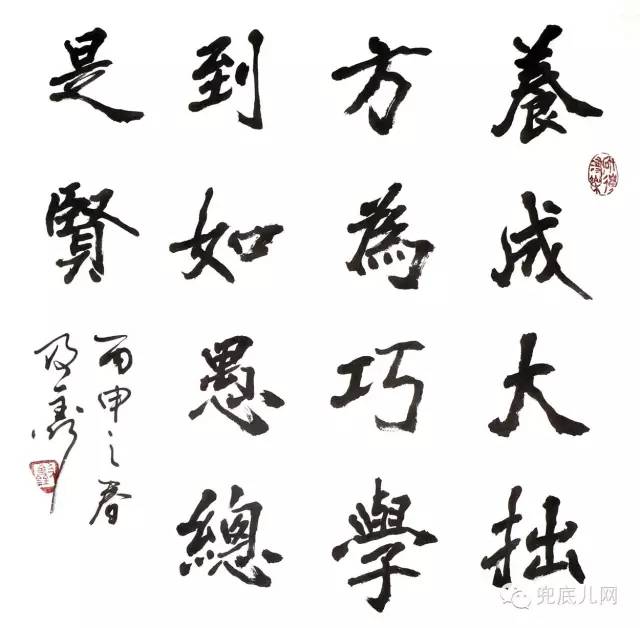 養成大拙
方為巧學
到如愚總
是賢
丙申之春
兜底儿网